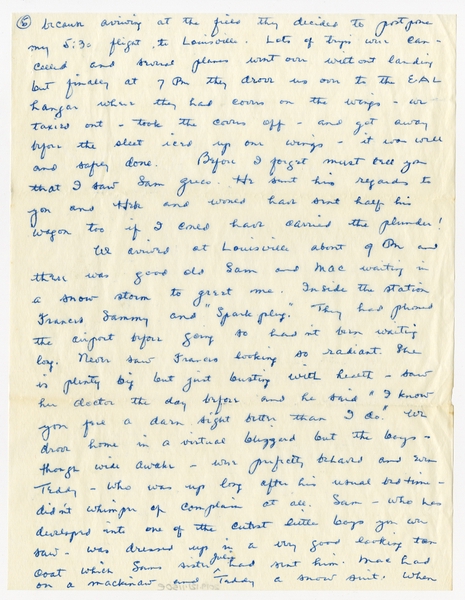 ⑥ because arriving at the field they decided to postpone
my 5:30 flight to Louisville. Lots of trips were can-
celled and several planes went over without landing
but finally at 7 Pm they drove us over to the EAL
hangar where they had covers on the wings - we
taxied out - took the covers off - and got away
before the sleet iced up our wings - it was well
and safely done. Before I forget must tell you
that I saw Sam Greco. He sent his regards to
you and and would have sent half his
wagon too if I could have carried the plunder!
We arrived at Louisville about 9 Pm and
there was good old Sam and Mac waiting in
a snow storm to greet me. Inside the station
Frances Sammy and "Spark plug". They had phoned
the airport before going so hadn't been waiting
long. Never saw Frances looking so radiant. She
is plenty big but just busting with health - saw
her doctor the day before and he said "I know
you feel a darn sight better than I do." We
drove home in a virtual blizzard but the boys -
though wide awake - were perfectly behaved and even
Teddy - who was up long after his usual bed-time -
didn't whimper or complain at all. Sam - who has
developed into one of the cutest little boys you ever
saw - was dressed up in a very good looking tan
coat which Sam's sister Julia had sent him. Mac had
on a mackinaw and Teddy a snow suit. When